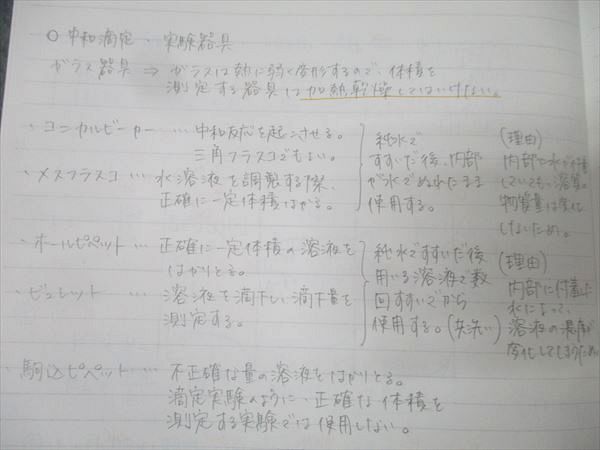 ○ 中和滴定・実験器具
ガラス器具 ⇒ ガラスは熱に弱く変形するので、体積を
測定する器具は加熱乾燥してはいけない。
・コニカルビーカー … 中和反応を起こさせる。
三角フラスコでもよい。
・メスフラスコ … 水溶液を調製する際、
正確に一定体積はかる。
純水で
すすいだ後、内部
が水でぬれたまま
使用する。
(理由)
内部に水が付着
していても、溶質の
物質量は変化
しないため。
・ホールピペット … 正確に一定体積の溶液を
はかりとる。
・ビュレット … 溶液を滴下し、滴下量を
測定する。
純水ですすいだ後
用いる溶液で数
回すすいでから
使用する。(共洗い)
(理由)
内部に付着した
水によって、
溶液の濃度が
変化してしまうため
・駒込ピペット … 不正確な量の溶液をはかりとる。
滴定実験のように、正確な体積を
測定する実験では使用しない。